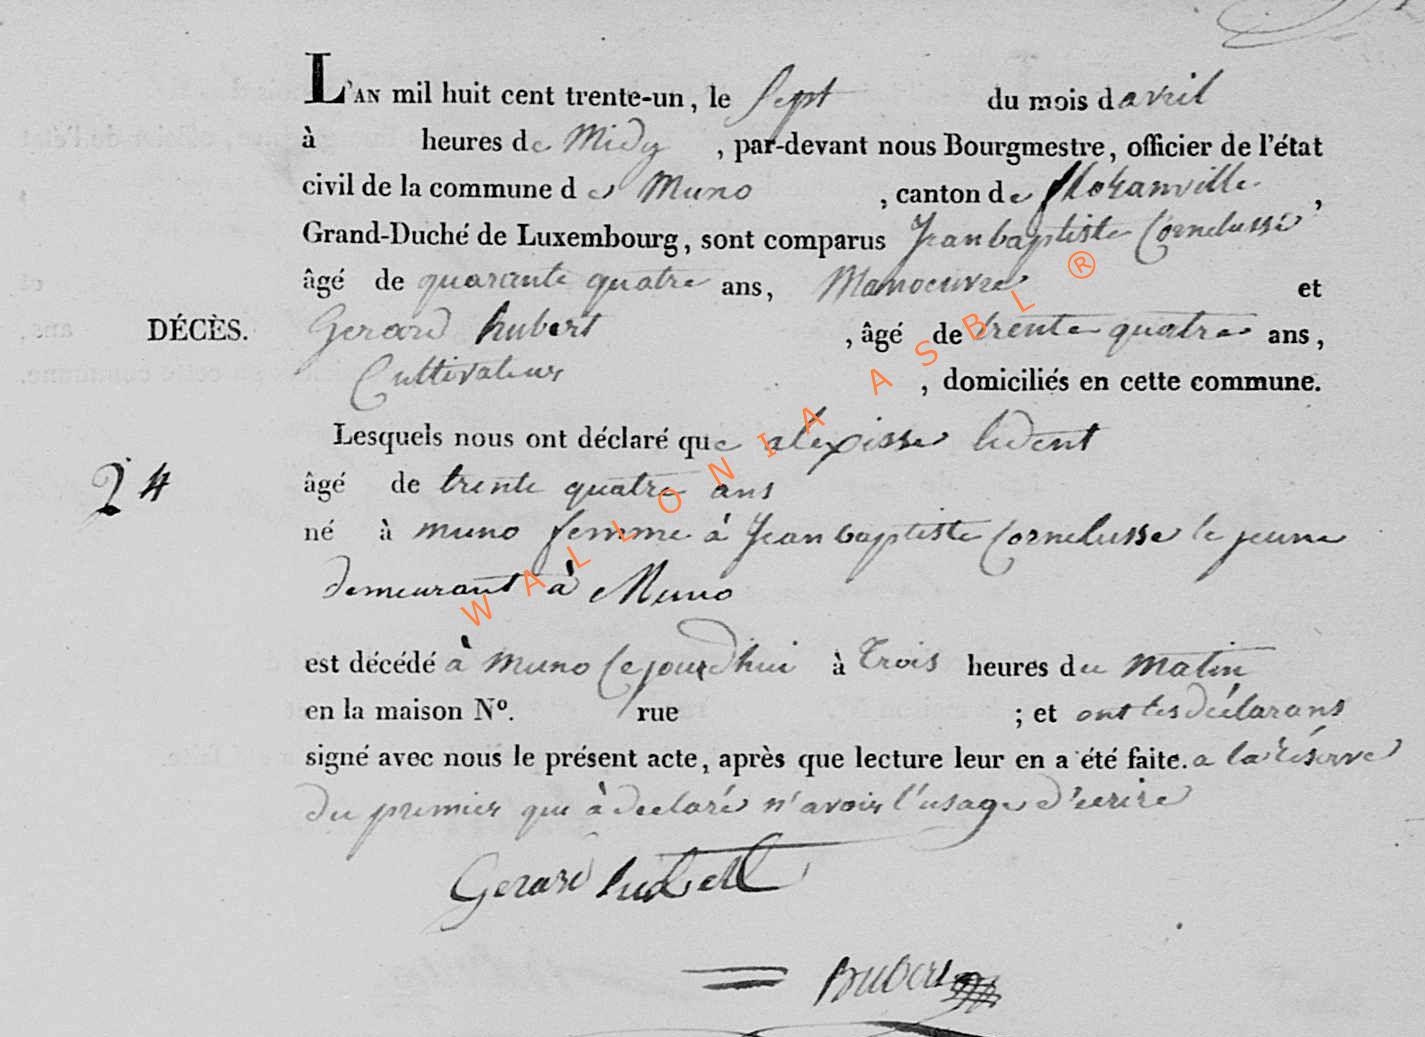 L'AN mil huit cent trente-un, le Sept du mois d avril
à heures de Midy, par-devant nous Bourgmestre, officier de l'état
civil de la commune d e Muno, canton de floranville,
Grand-Duché de Luxembourg, sont comparus Jean baptiste Cornelusse
âgé de quarante quatre ans, Manoeuvre et
DÉCÈS. Gerard hubert, âgé de trente quatre ans,
Cultivateur, domiciliés en cette commune.
Lesquels nous ont déclaré que alexisse
24 âgé de trente quatre ans
né à muno femme à Jean baptiste Cornelusse le jeune
demeurant à Muno
est décédé à muno Cejourdhui à trois heures du matin
en la maison Nº. rue ; et ont les déclarans
signé avec nous le présent acte, après que lecture leur en a été faite. a la réserve
du premier qui à declaré n'avoir l'usage d'ecrire
Gerard hubert
WALLONIA ASBL ®